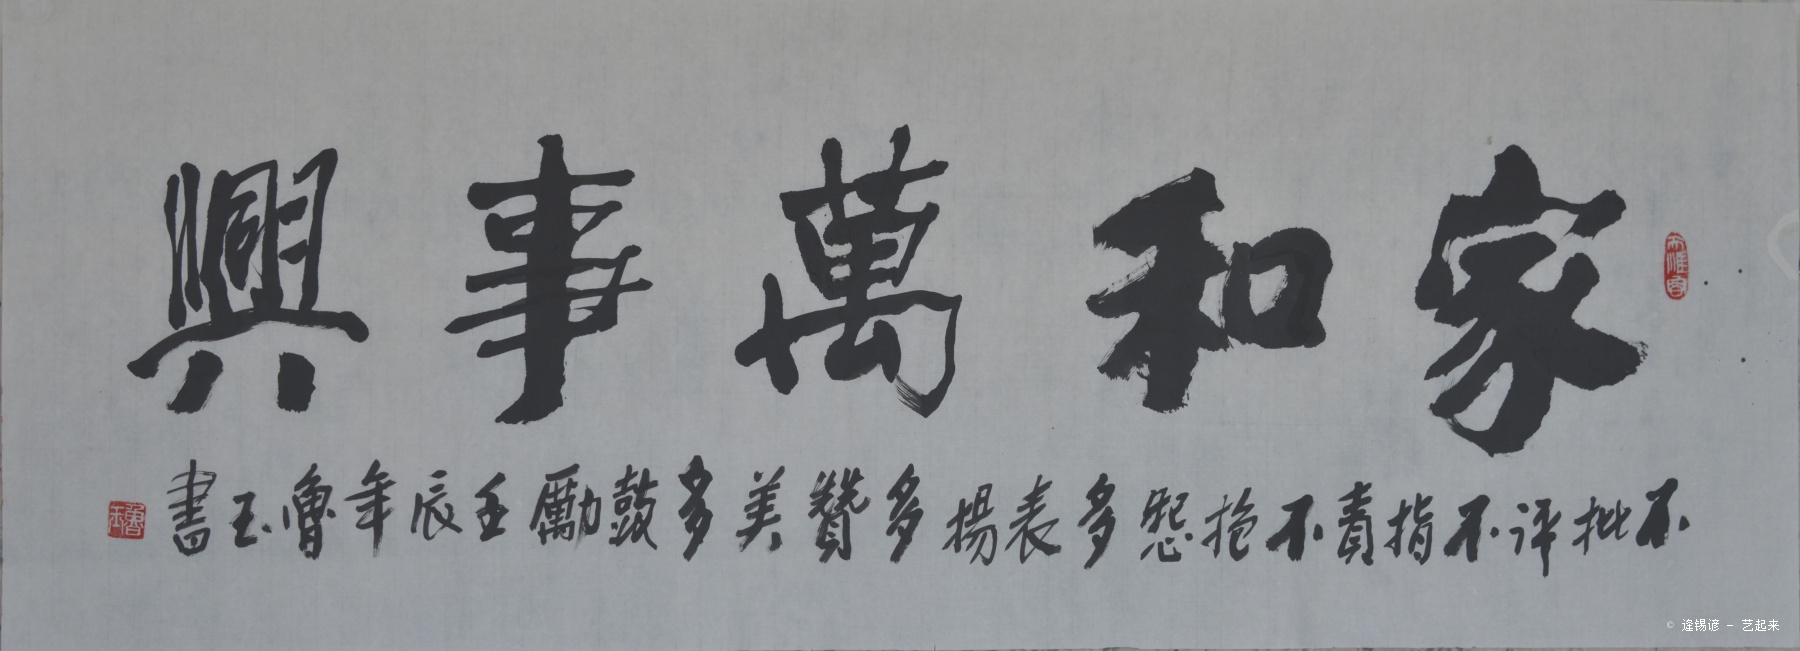 家和萬事興
不批评不指責不抱怨多表揚多贊美多鼓勵壬辰年魯玉書
魯玉
© 逄锡谚 - 艺起来